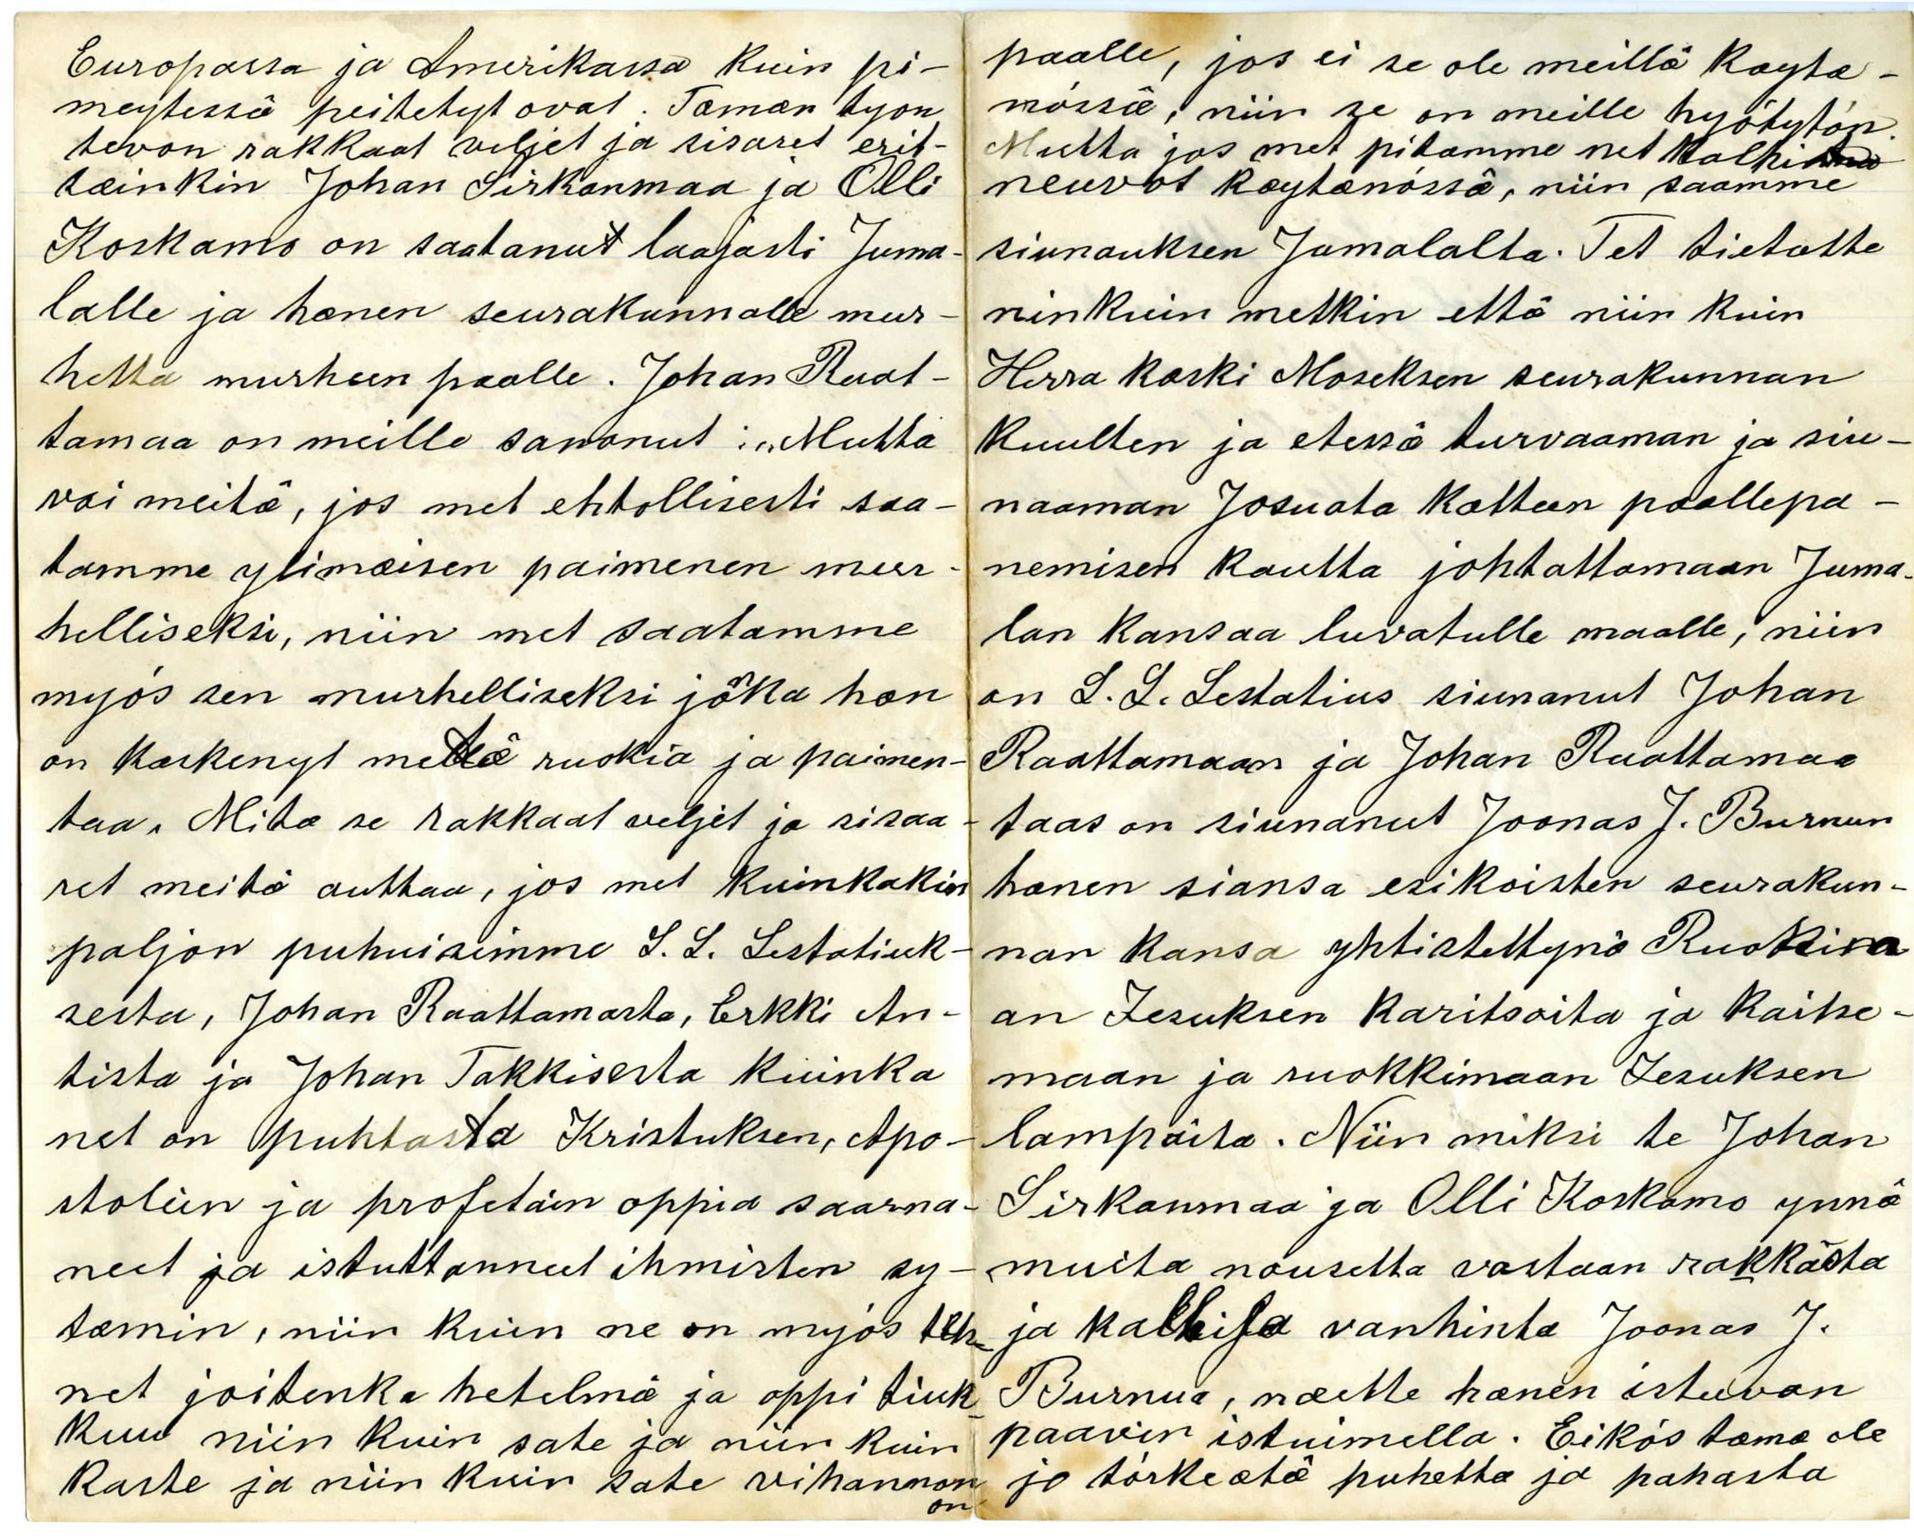 Europassa ja Amerikassa kuin pi-
meytessä peitetyt ovat. Tæmæn tyon
tevon rakkaat veljet ja sisaret erit-
tæinkin Johan Sirkanmaa ja Olli
Koskamo on saatanut laajasti Juma-
lalle ja hænen seurakunnalle mur-
hetta murheen paalle. Johan Raat-
tamaa on meille sanonut: „Mutta
voi meitä, jos met ehtollisesti saa-
tamme ylimæisen paimenen mur-
helliseksi, niin met saatamme
myós sen murhelliseksi joka hæn
on kæskenyt mettä ruokia ja paimen-
taa. Mitæ se rakkaat veljet ja sisaa-
ret meitä auttaa, jos met kuinkakin
paljon puhuisimme L. L. Lestatiuk-
sesta, Johan Raattamasta, Erkki An-
tista ja Johan Takkisesta kuinka
net on puhtasta Kristuksen, Apo-
stolein ja profetáin oppia saarna-
neet ja istuttanneet ihmisten sy-
tæmin, niin kuin ne on myós teh-
net joitenka hetelmä ja oppi tiuk-
kuu niin kuin sate ja niin kuin
kaste ja niin kuin sate vihannon
on
paalle, jos ei se ole meillä kæytæ-
nóssä, niin se on meille hyótytón.
Mutta jos met pitamme net kalhi
neuvot kæytænóssä, niin saamme
siunauksen Jumalalta. Tet tietætte
ninkuin metkin että niin kuin
Herra kæski Moseksen seurakunnan
kuulten ja etessä turvaaman ja siu-
naaman Josuata kætteen pæallepa-
nemisen kautta johtattamaan Juma-
lan kansaa luvatulle maalle, niin
on L. L. Lestatius siunanut Johan
Raattamaan ja Johan Raattamaa
taas on siunanut Joonas J. Burnun
hænen siansa esikoisten seurakun-
nan kansa yhtistettynä Ruokina
an Jesuksen karitsoita ja kaitse-
maan ja ruokkimaan Jesuksen
lampáita. Niin miksi te Johan
Sirkanmaa ja Olli Koskamo ynnä
muita nousetta vastaan rakkásta
ja kallista vanhinta Joonas J.
Burnua, næette hænen istuvan
paavin istuimella. Eikós tæmæ ole
jo tórkeætä puhetta ja pahasta